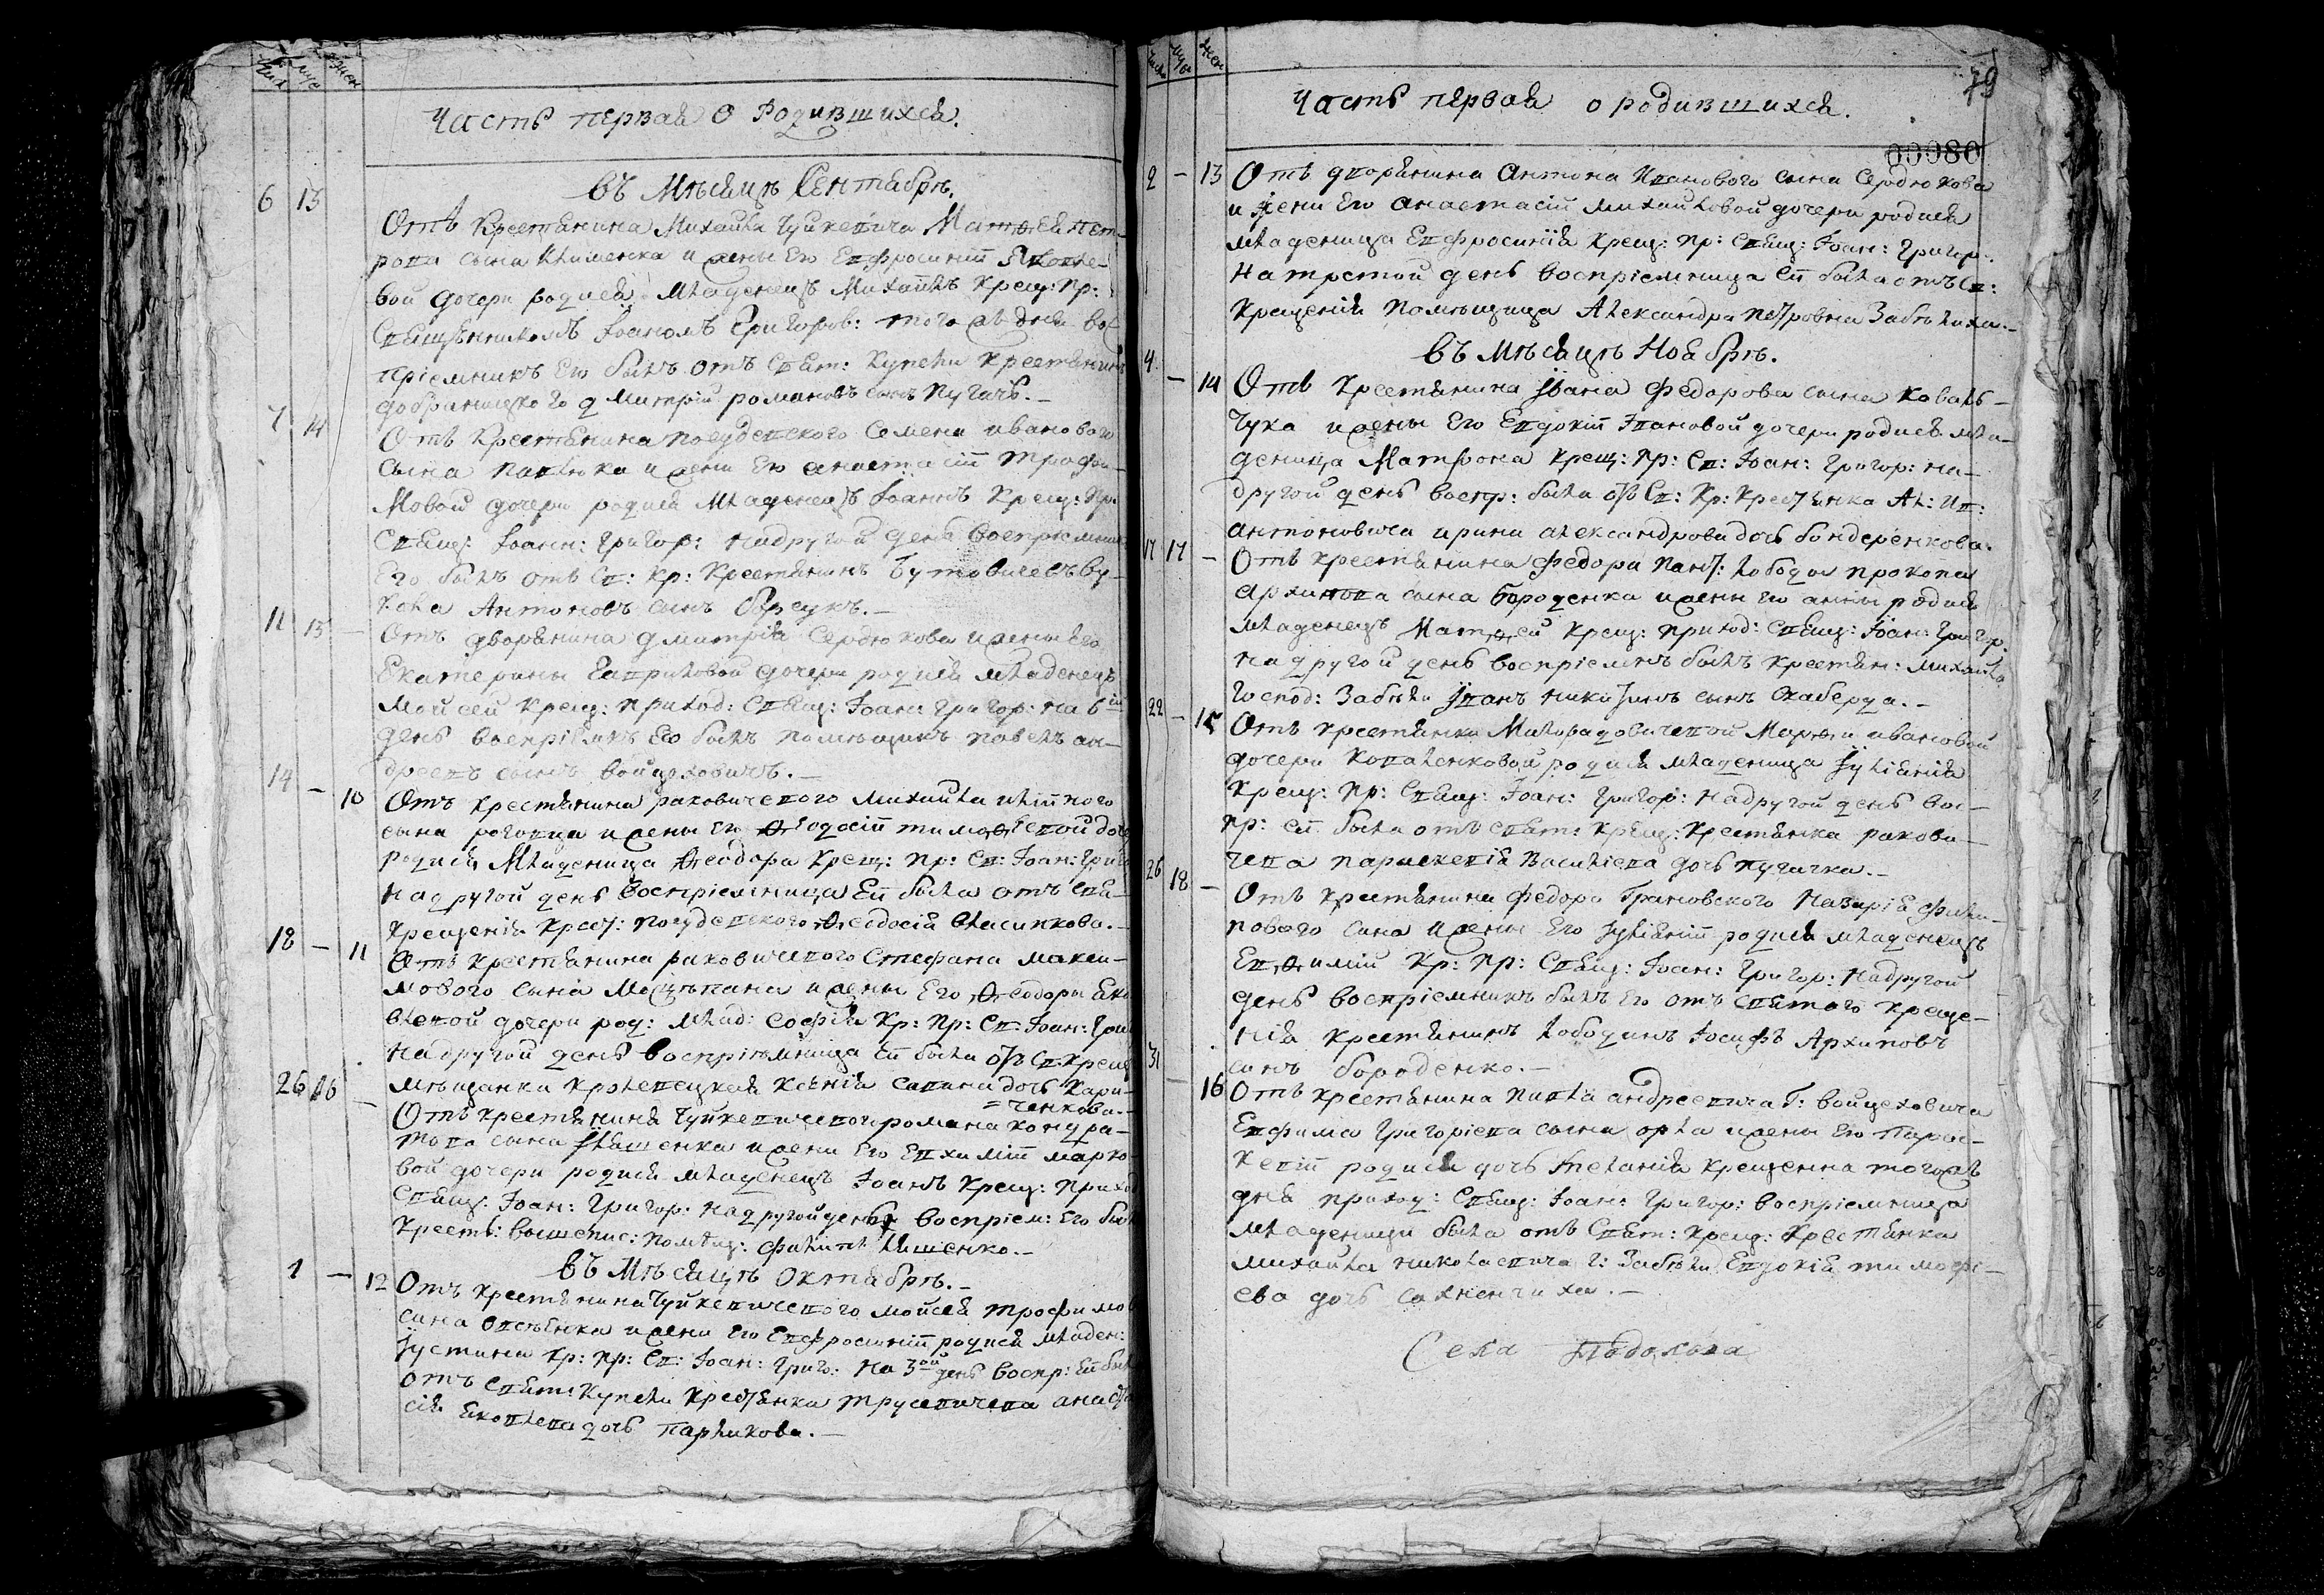 Числ муж жен
Часть первая о Родившихся.
въ Мѣсяцѣ Сентябрѣ.
6 13
Отъ Крестьянина Михайла Чуйкевича Матѳея Пет-
рова сына Клименка и жены Его Евфросиніи Яковле-
вой дочери родися младенецъ Михаилъ Крещ: Пр:
Священникомъ Іоаномъ Григоров: того жъ дня вос
пріемникъ Его былъ отъ Свят: Купели Крестянинъ
Дмитрій романовъ сынъ Пугачъ.
7 14
Отъ Крестьянина Семена иванового
сына Павлюка и жени Его анастасіи Трофи-
мовой дочери родися Младенецъ Іоаннъ Крещ: Пр:
Свящ: Іоанн: Григор: на другой день воспріемник
Его былъ отъ Св: Кр: Крестянинъ Бутовичевъ ву-
кола Антоновъ синъ барсукъ.
11 15 —
Отъ дворянина Дмитрія Сердюкова и жены Его
Екатерины Гавриловой дочери родися младенецъ
Мойсей Крещ: приход: Свящ: Іоан: Григор: на 6ій
день воспріемникъ Его былъ помѣщикъ павелъ ан-
дреевъ сынъ войцеховичъ.
14 — 10
Отъ крестянина раковичевого Михайла
сына роговца и жены Его Ѳеодосіи тимоѳеевой доче
родися Младеница Ѳеодора Крещ: Пр: Св: Іоан: Григо
на другой день Воспріемница Еи была отъ Свя-
крещенія Крест: Ѳеодосія власинкова.
18 — 11
Отъ крестянина раковичевого Стефана макси-
мового сына и жены Его Ѳеодоры Яко
влевой дочери род: млад: Софія Кр: Пр: Св: Іоан: Григ
на другой день воспріемница Еи была отъ Св: Крещ
мѣщанка кролевецкая Ксенія савина дочь Хари-
=ченкова.
26 16 —
Отъ крестянина Чуйкевичевого романа кондра-
това сына Ильяшенка и жени Его Евхиміи марко-
вой дочери родися младенецъ Іоанъ Крещ: Приход
Свящ: Іоан: Григор: на другой день воспріем: Его был
Кресть: вышепис: помѣщ: филипъ Ляшенко.
въ Мѣсяцѣ Октябрѣ.
1 — 12
Отъ крестянина Чуйкевичевого мойсея трофимов
сина Овсѣенка и жени Его Евфросиніи родися младен:
Іустина Кр: Пр: Св: Іоан: Григо: на 3ой день воспр: Еи был
отъ Свят: Купели Крестянка трусевичева анаста
сія Яковлева дочь Парликова.
Числ муж жен
79
Часть первая о родившихся.
00080
2 — 13
Отъ дворянина Антона Иванового сына Сердюкова
и жени Его анастасіи михайловой дочери родися
младеница Евфросинія Крещ: Пр: Свящ: Іоан: Григор:
на третой день воспріемница Еи была отъ Св:
Крещенія Помѣщица Александра петровна Забѣлиха.
въ Мѣсяцѣ Ноябрѣ.
4 — 14
Отъ Крестянина Івана Федорова сына Коваль-
чука и жены Его Евдокіи Ивановой дочери родися мла-
деница Матрона Крещ: Пр: Св: Іоан: Григор: на-
другой день воспр: была отъ Св: Кр: Крестянка Ал: Ив:
антоновича ирина александрова дочь бондеренкова.
17 17 —
Отъ крестянина Федора Пант: лободы прокопа
архипова сына Бороденка и жены Его анны родися
младенецъ Матѳей Крещ: приход: Свящ: Іоан: Григор.
на другой день воспріемнъ былъ крестян: михайла
Господ: Забѣли Іванъ никитинъ сынъ Скаберда.
22 — 15
Отъ крестянки Милорадовичевой Марѳи ивановой
дочери Коваленковой родися младеница Іуліанія
Крещ: Пр: Свящ: Іоан: Григор: на другой день вос-
пр: еи была отъ свят: Крещ: Крестянка ракови-
чева параскевія Василіева дочь пугачка.
26 18 —
Отъ Крестянина Федора Грановского Назарія фили-
пового сина и жены Его Іуліаніи родися младенецъ
Евѳимій Кр: Пр: Свящ: Іоан: Григор: на другой
день воспріемникъ былъ Его отъ Святого креще-
нія Крестянинъ лободинъ Іосифъ Архиповъ
синъ бороденко.
31 — 16
Отъ крестянина Павла андреевича Г: войцеховича
Евфима Григоріева сына орла и жены Его Парас-
кевіи родися дочь Мелания крещенна тогожъ
дня приход: Свящ: Іоан: Григор: воспріемница
младеници была отъ Свят: Крещ: Крестянка
михайла николаевича Г: Забѣли Евдокія тимофе-
ева дочь сахненчиха.
Села Подолова